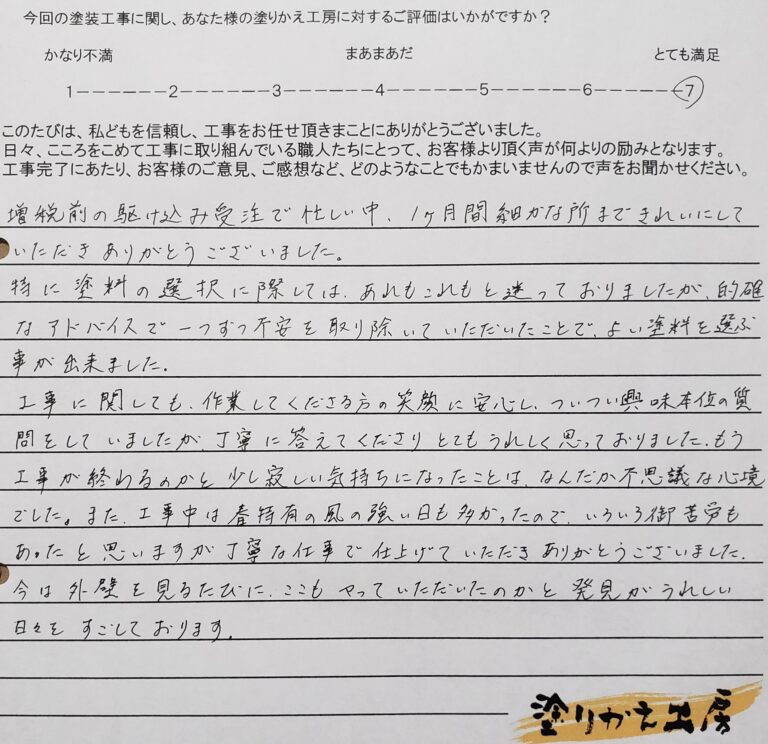 今回の塗装工事に関し、あなた様の塗りかえ工房に対するご評価はいかがですか？
かなり不満 まあまあだ とても満足
1------2------3------4------5------6------7
このたびは、私どもを信頼し、工事をお任せ頂きまことにありがとうございました。
日々、こころをこめて工事に取り組んでいる職人たちにとって、お客様より頂く声が何よりの励みとなります。
工事完了にあたり、お客様のご意見、ご感想など、どのようなことでもかまいませんので声をお聞かせください。
増税前の駆け込み受注で忙しい中、1ヶ月間細かな所まできれいにして
いただきありがとうございました。
特に塗料の選択に際しては、あれもこれもと迷っておりましたが、的確
なアドバイスで一つずつ不安を取り除いていただいたことで、よい塗料を選ぶ
事が出来ました。
工事に関しても、作業してくださる方の笑顔に安心し、ついつい興味本位の質
問をしていましたが、丁寧に答えてくださりとてもうれしく思っておりました。もう
工事が終わるのかと少し寂しい気持ちになったことは、なんだか不思議な心境
でした。また、工事中は春特有の風の強い日も多かったので、いろいろ御苦労も
あったと思いますが丁寧な仕事で仕上げていただきありがとうございました。
今は外壁を見るたびに、ここもやっていただいたのかと発見がうれしい
日々をすごしております。
塗りかえ工房